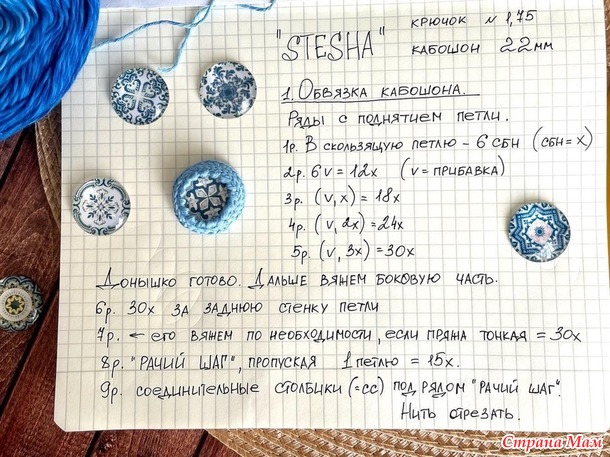 "STESHA"
КРЮЧОК N 1,75
КАБОШОН 22 мм
1. ОБВЯЗКА КАБОШОНА.
РЯДЫ С ПОДНЯТИЕМ ПЕТЛИ.
1р. В СКОЛЬЗЯЩУЮ ПЕТЛЮ – 6 СБН (СБН = X)
2р. 6V = 12X (V = ПРИБАВКА)
3р. (V, X) = 18X
4р. (V, 2X) = 24X
5р. (V, 3X) = 30X
ДОНЫШКО ГОТОВО. ДАЛЬШЕ ВЯЖЕМ БОКОВУЮ ЧАСТЬ.
6р. 30X ЗА ЗАДНЮЮ СТЕНКУ ПЕТЛИ
7р. ← ЕГО ВЯЖЕМ ПО НЕОБХОДИМОСТИ, ЕСЛИ ПРЯЖА ТОНКАЯ = 30X
8р. "РАЧИЙ ШАГ", ПРОПУСКАЯ 1 ПЕТЛЮ = 15X.
9р. СОЕДИНИТЕЛЬНЫЕ СТОЛБИКИ (=СС) ПОД РЯДОМ "РАЧИЙ ШАГ".
НИТЬ ОТРЕЗАТЬ.
Страна Мам